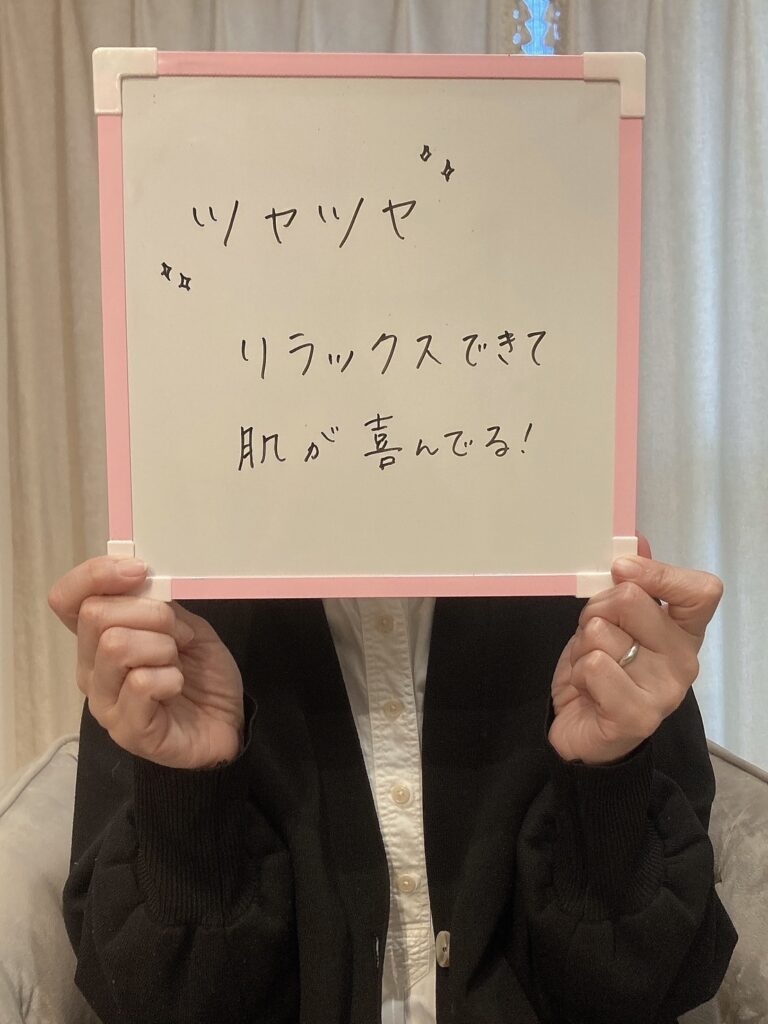 ツヤツヤ
リラックスできて
肌が喜んでる!